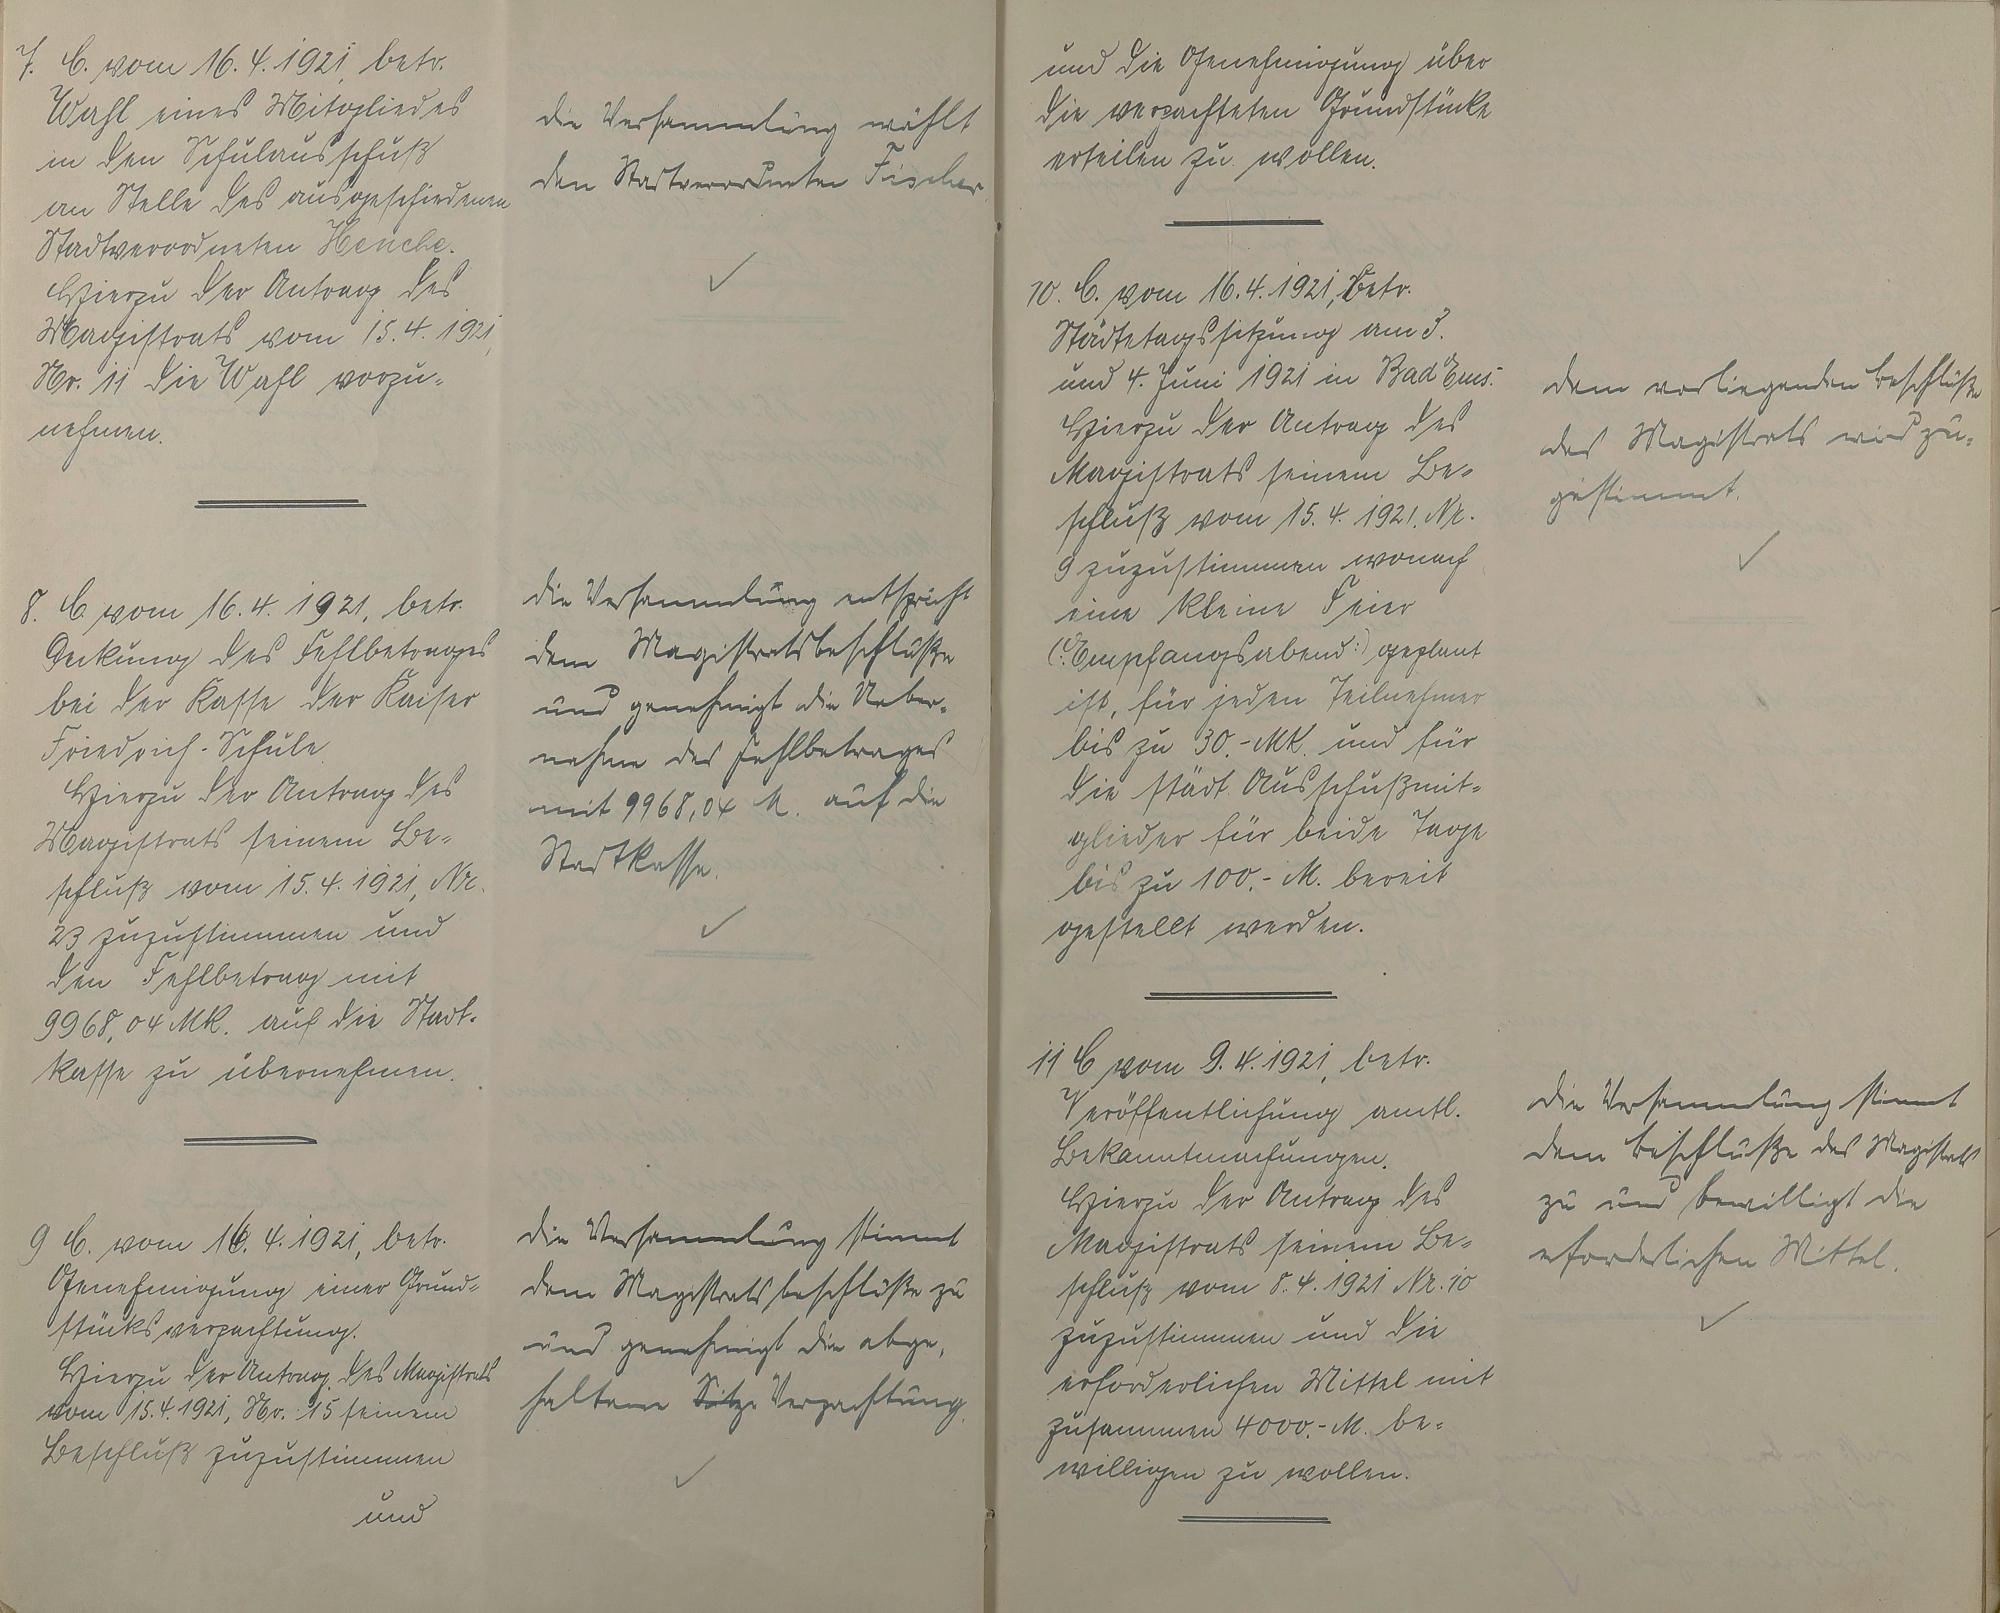 7. C. vom 16.4.1921, betr.
Wahl eines Mitgliedes
in den Schulausschuß
an Stelle des ausgeschiedenen
Stadtverordneten Henche.
Hierzu der Antrag des
Magistrats vom 15.4.1921,
Nr. 11 die Wahl vorzu-
nehmen.
die Versammlung wählt
den Stadtverordneten Fischer.
8. C. vom 16.4.1921, betr.
Deckung des Fehlbetrages
bei der Kasse der Kaiser
Friedrich-Schule.
Hierzu der Antrag des
Magistrats seinem Be-
schluß vom 15.4.1921, Nr.
23 zuzustimmen und
den Fehlbetrag mit
9968,04 Mk. auf die Stadt-
kasse zu übernehmen.
die Versammlung entspricht
dem Magistratsbeschluße
und genehmigt die Ueber-
nahme des Fehlbetrages
mit 9968,04 M. auf die
Stadtkasse.
9 C. vom 16.4.1921, betr.
Genehmigung einer Grund-
stücksverpachtung.
Hierzu der Antrag des Magistrats
vom 15.4.1921, Nr. 15 seinem
Beschluß zuzustimmen
und
die Versammlung stimmt
dem Magistratsbeschluße zu
und genehmigt die abge-
haltene Verpachtung.
und die Genehmigung über
die verpachteten Grundstücke
erteilen zu wollen.
10. C. vom 16.4.1921, betr.
Städtetagssitzung am 3.
und 4. Juni 1921 in Bad Ems.
Hierzu der Antrag des
Magistrats seinem Be-
schluß vom 15.4.1921. Nr.
9 zuzustimmen wonach
eine kleine Feier
(: Empfangsabend :) geplant
ist, für jeden Teilnehmer
bis zu 30.- Mk. und für
die städt. Ausschußmit-
glieder für beide Tage
bis zu 100.- M. bereit
gestellt werden.
dem vorliegenden Beschluße
des Magistrats wird zu-
gestimmt.
11 C vom 9.4.1921, betr.
Veröffentlichung amtl.
Bekanntmachungen.
Hierzu der Antrag des
Magistrats seinem Be-
schluß vom 8.4.1921 Nr. 10
zuzustimmen und die
erforderlichen Mittel mit
zusammen 4000.- M. be-
willigen zu wollen.
die Versammlung stimmt
dem Beschluße des Magistrats
zu und bewilligt die
erforderlichen Mittel.